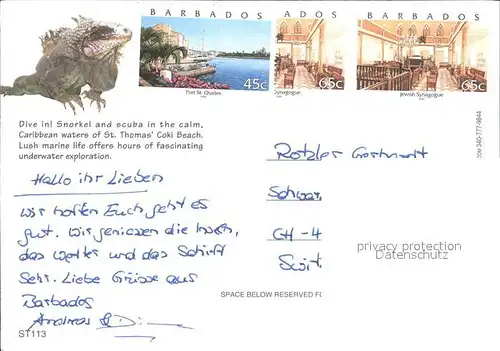 BARBADOS
45c
Port St. Charles
ADOS
65c
Synagogue
BARBADOS
65c
Jewish Synagogue
Dive in! Snorkel and scuba in the calm,
Caribbean waters of St. Thomas' Coki Beach.
Lush marine life offers hours of fascinating
underwater exploration.
Hallo ihr Lieben
Wir hoffen Euch geht es
gut. Wir geniessen die Inseln,
das Wetter und das Schiff
Sehr. Liebe Grüsse aus
Barbados
Andreas &
ST113
340-777-9844
Rotzler
Schwar
CH-4
privacy protection
Datenschutz
SPACE BELOW RESERVED FO